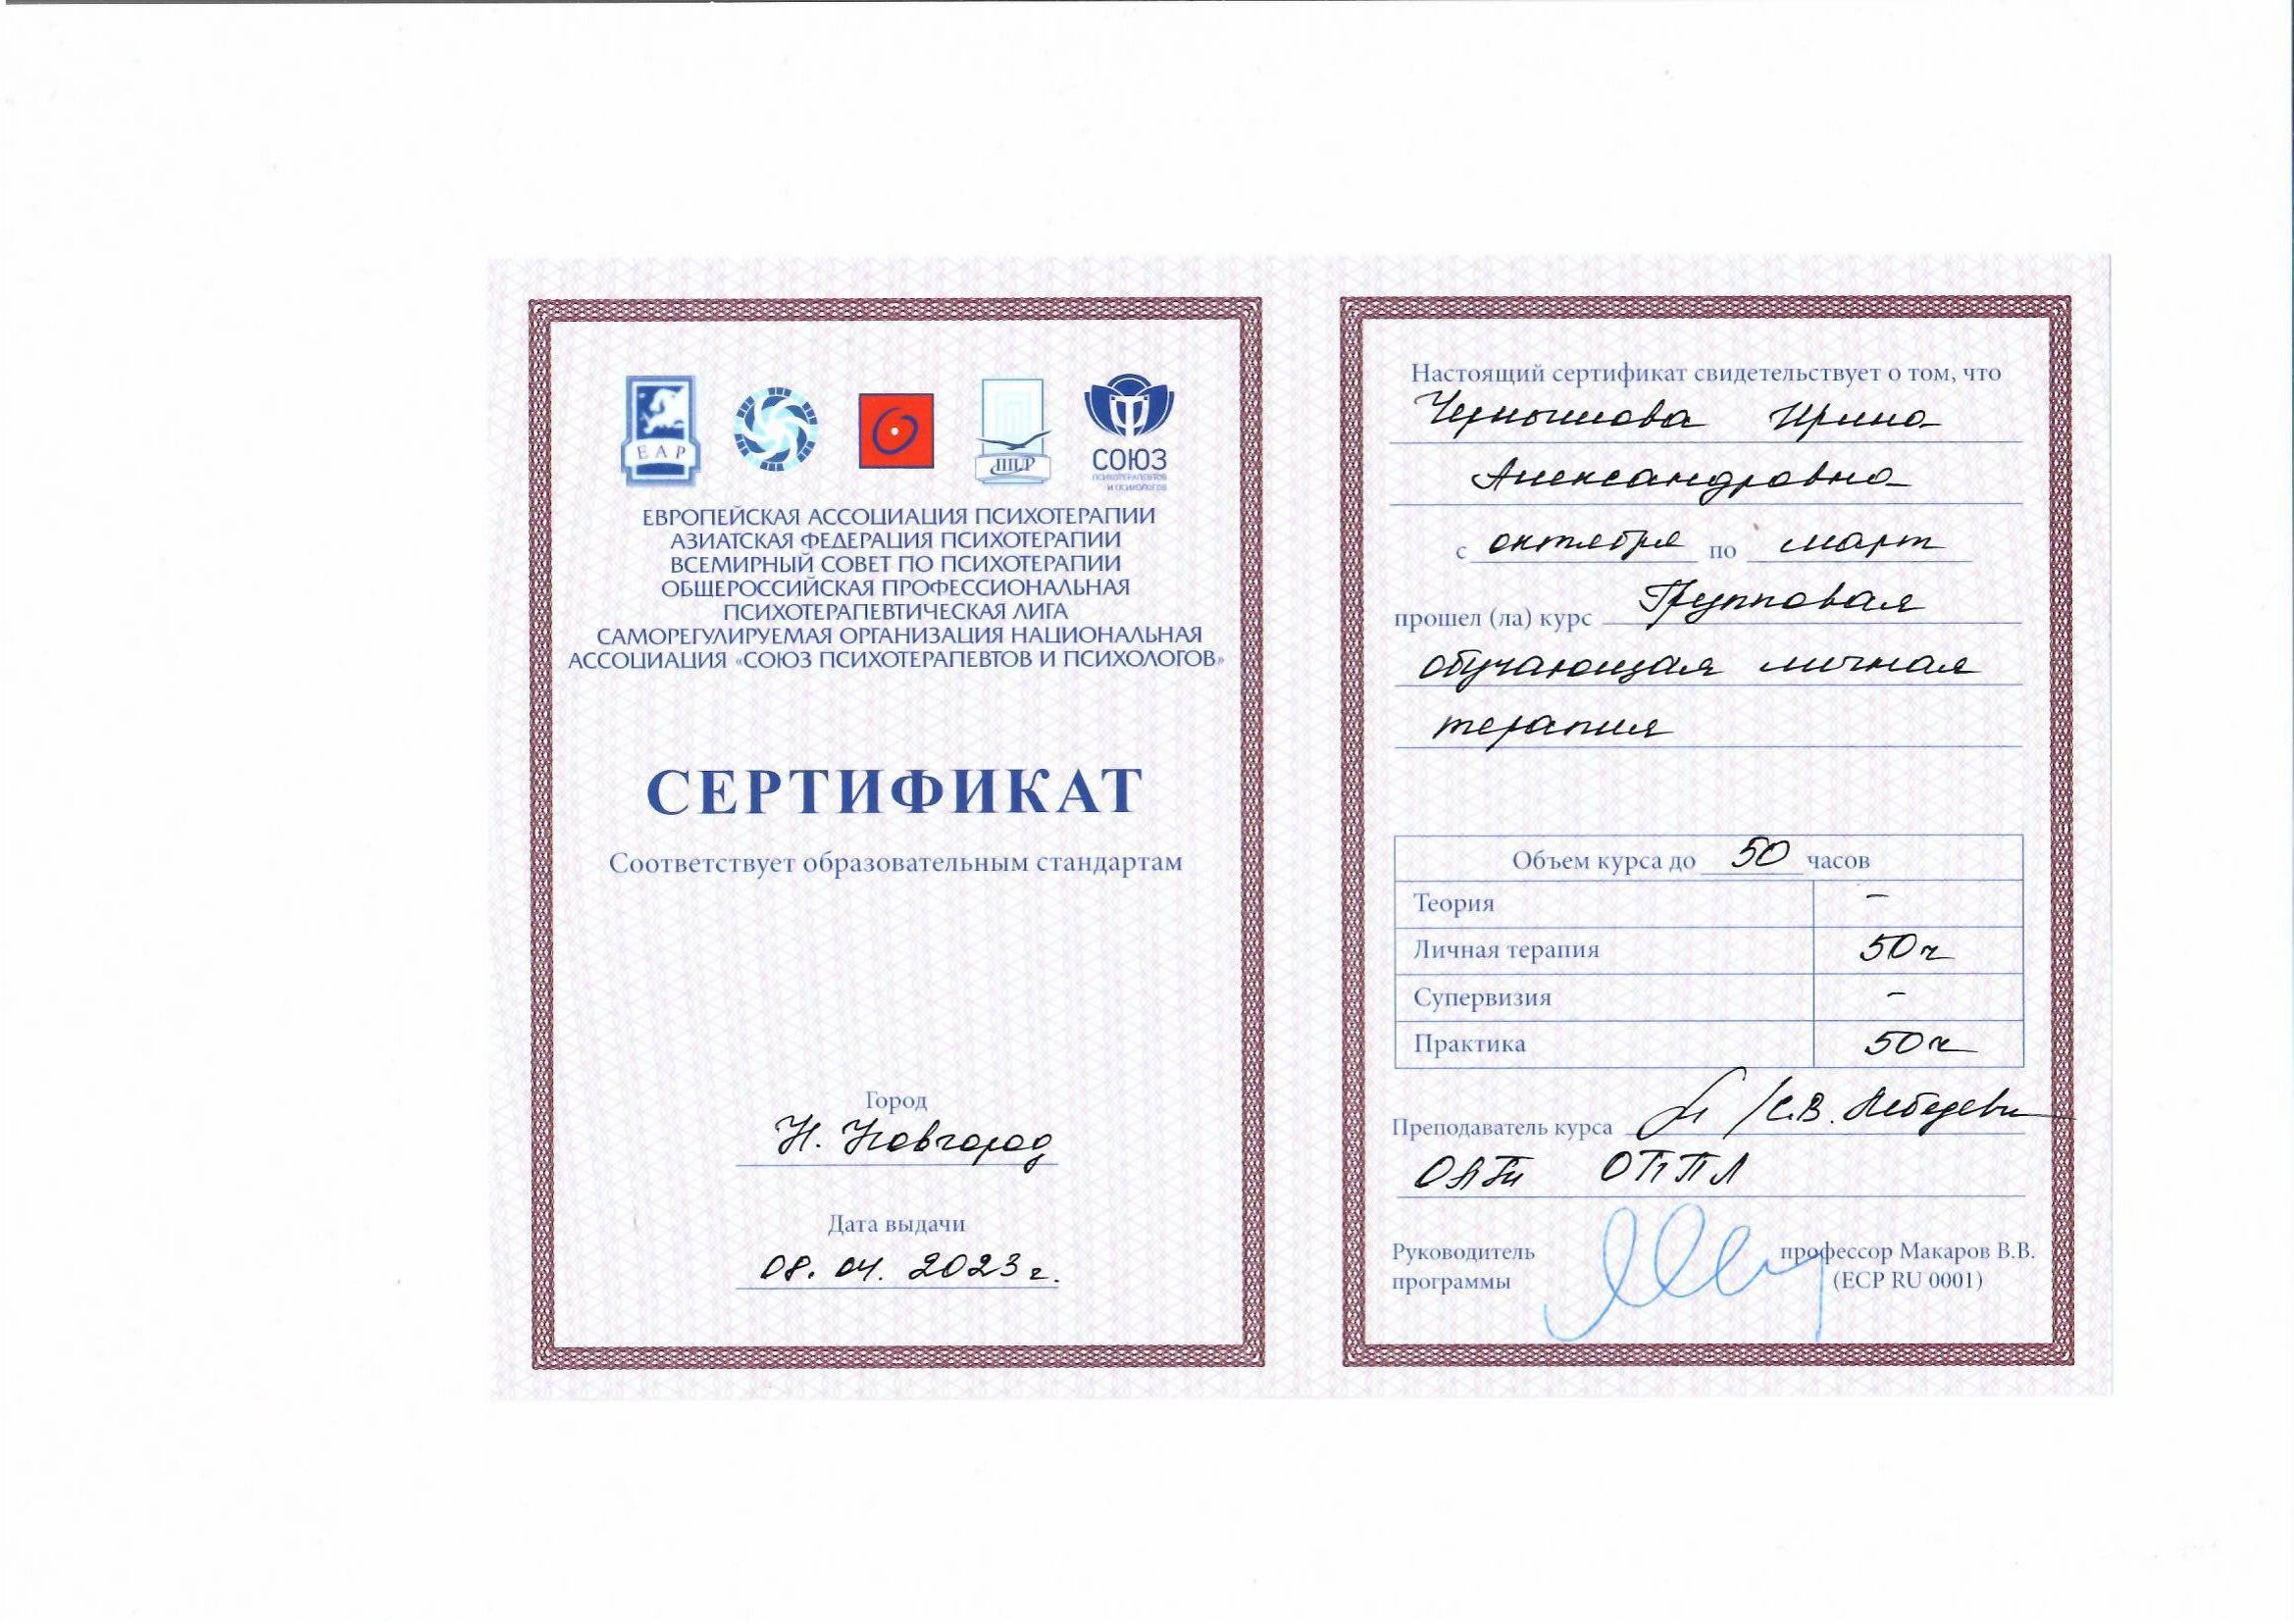 ЕАР
ППЛ
СОЮЗ
ПСИХОТЕРАПЕВТОВ
И ПСИХОЛОГОВ
ЕВРОПЕЙСКАЯ АССОЦИАЦИЯ ПСИХОТЕРАПИИ
АЗИАТСКАЯ ФЕДЕРАЦИЯ ПСИХОТЕРАПИИ
ВСЕМИРНЫЙ СОВЕТ ПО ПСИХОТЕРАПИИ
ОБЩЕРОССИЙСКАЯ ПРОФЕССИОНАЛЬНАЯ
ПСИХОТЕРАПЕВТИЧЕСКАЯ ЛИГА
САМОРЕГУЛИРУЕМАЯ ОРГАНИЗАЦИЯ НАЦИОНАЛЬНАЯ
АССОЦИАЦИЯ «СОЮЗ ПСИХОТЕРАПЕВТОВ И ПСИХОЛОГОВ»
СЕРТИФИКАТ
Соответствует образовательным стандартам
Город
Н. Новгород
Дата выдачи
08.04.2023 г.
Настоящий сертификат свидетельствует о том, что
Чернышова Ирина
Александровна
с октября по март
прошел (ла) курс Групповая
обучающая личная
терапия
Объем курса до 50 часов
Теория –
Личная терапия 50 ч
Супервизия –
Практика 50 ч
Преподаватель курса /С.В. Лебедева
ОПТЛ ОППЛ
Руководитель профессор Макаров В.В.
программы (ECP RU 0001)